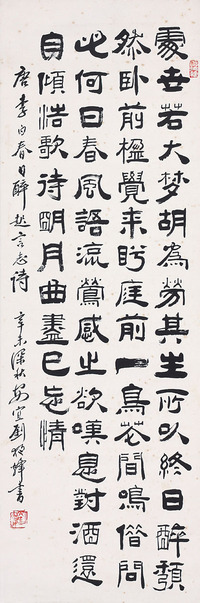 處世若大梦胡為勞其生所以終日醉頹
然卧前楹覺来眄庭前一鳥花間鳴借問
此何日春風語流鶯感之欲嘆息對酒還
自傾浩歌待明月曲盡已忘情
唐李白春日醉起言志詩 辛未深秋安宜劉書